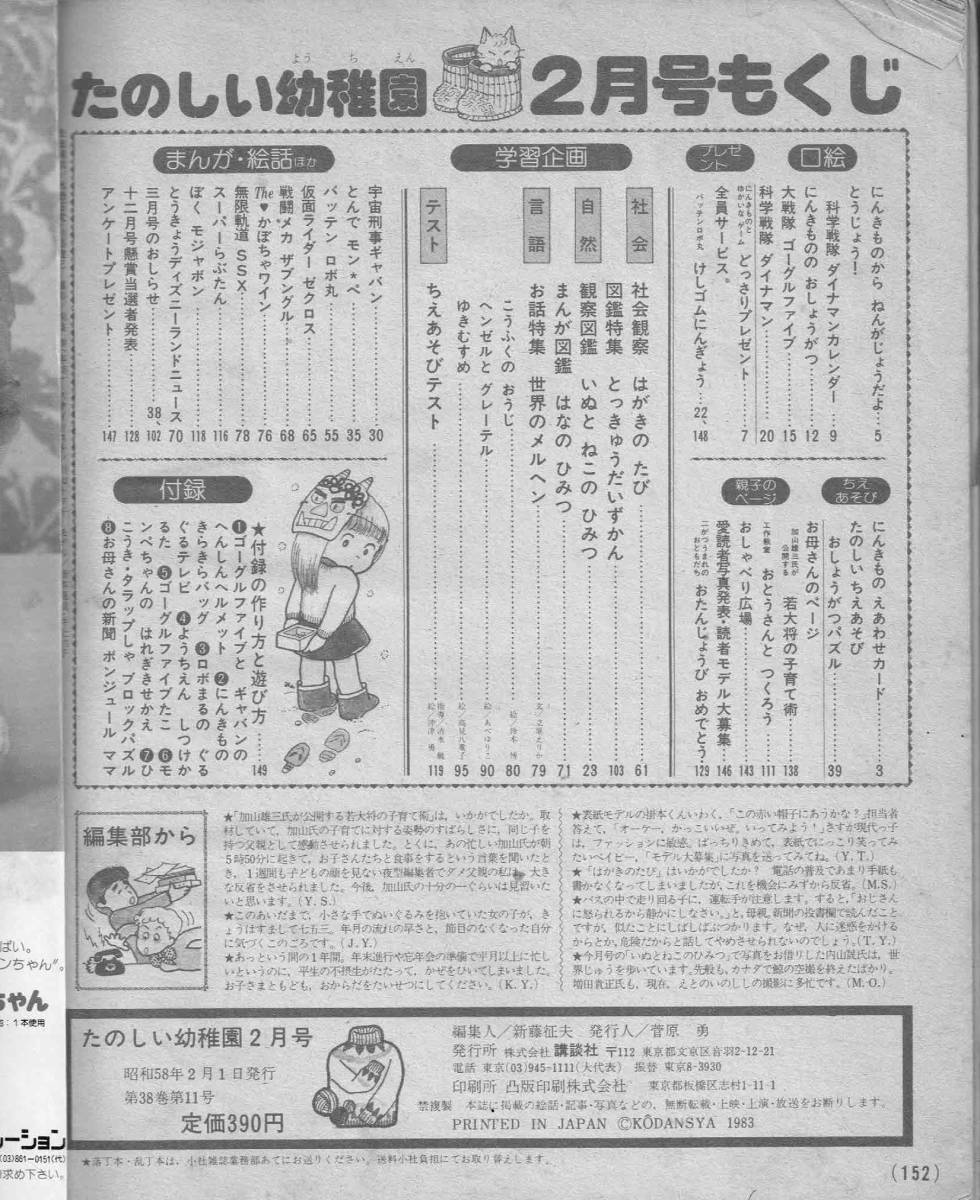 たのしい幼稚園 2月号もくじ
よう ち えん
口絵
にんきものから ねんがじょうだよ……5
とうじょう!
科学戦隊 ダイナマンカレンダー……9
にんきものの おしょうがつ……12
大戦隊 ゴーグルファイブ……15
科学戦隊 ダイナマン……20
プレゼント
にんきものと
ゆかいなゲーム どっさりプレゼント……7
全員サービス。
バッテンロボ丸 けしゴムにんぎょう……22、148
ちえあそび
にんきもの えあわせカード……3
たのしい ちえあそび
おしょうがつパズル……39
親子のページ
お母さんのページ
加山雄三氏が公開する 若大将の子育て術……138
工作教室 おとうさんと つくろう……111
おしゃべり広場……143
愛読者写真発表・読者モデル大募集……146
二がつうまれのおともだち おたんじょうび おめでとう……129
学習企画
社会
社会観察 はがきの たび……61
図鑑特集 とっきゅうだいずかん……103
自然
観察図鑑 いぬと ねこの ひみつ……23
まんが図鑑 はなの ひみつ……71
言語
お話特集 世界のメルヘン……79
こうふくの おうじ……絵/鈴木 博 80
ヘンゼルと グレーテル……絵/あべゆりこ 90
ゆきむすめ……絵/高見八重子 95
テスト
ちえあそびテスト……119
まんが・絵話ほか
宇宙刑事ギャバン……30
とんで モン★ペ……35
バッテン ロボ丸……55
仮面ライダー ゼクロス……65
戦闘メカ ザブングル……68
The♥かぼちゃワイン……76
無限軌道 SSX……78
スーパーらぶたん……116
ぼく モジャボン……118
とうきょうディズニーランドニュース……70
三月号のおしらせ……38、102
十二月号懸賞当選者発表……128
アンケートプレゼント……147
付録
★付録の作り方と遊び方……149
❶ゴーグルファイブと ギャバンの
へんしんヘルメット ❷にんきもの
きらきらバッグ ❸ロボまるの ぐる
ぐるテレビ ❹ようちえん しつけか
るた ❺ゴーグルファイブたこ ❻モ
ンペちゃんの はれぎきせかえ ❼ひ
こうき・タラップしゃ ブロックパズル
❽お母さんの新聞 ボンジュール ママ
編集部から
★「加山雄三氏が公開する若大将の子育て術」は、いかがでしたか。取
材していて、加山氏の子育てに対する姿勢のすばらしさに、同じ子を
持つ父親として感動させられました。とくに、あの忙しい加山氏が朝
5時50分に起きて、お子さんたちと食事をするという言葉を聞いたと
き、1週間も子どもの顔を見ない夜型編集者でダメ父親の私は、大き
な反省をさせられました。今後、加山氏の十分の一ぐらいは見習いた
いと思います。(Y.S.)
★このあいだまで、小さな手でぬいぐるみを抱いていた女の子が、き
ょうはすまして七五三。年月の流れの早さと、節目のなくなった自分
に気づくこのごろです。(J.Y.)
★あっという間の1年間。年末進行や忘年会の準備で半月以上に忙し
いというのに、平生の不摂生がたたって、かぜをひいてしまいました。
お子さまともども、おからだをたいせつにしてください。(K.Y.)
★表紙モデルの掛本くんいわく、「この赤い帽子にあうかな?」担当者
答えて、「オーケー、かっこいいぜ。いってみよう!」さすが現代っ子
は、ファッションに敏感。ばっちりきめて、表紙でにっこり笑ってみ
たいベイビー、「モデル大募集」に写真を送ってみてね。(Y.T.)
★「はがきのたび」はいかがでしたか? 電話の普及であまり手紙も
書かなくなってしまいましたが、これを機会にみずから反省。(M.S.)
★バスの中で走り回る子に、運転手が注意します。すると、「おじさん
に怒られるから静かにしなさい。」と、母親。新聞の投書欄で読んだこと
ですが、似たことにしばしばぶつかります。なぜ、人に迷惑をかける
からとか、危険だからと話してやめさせられないのでしょう。(T.Y.)
★今月号の「いぬとねこのひみつ」で写真をお借りした内山晟氏は、世
界じゅうを歩いています。先般も、カナダで鯨の空撮を終えたばかり。
増田貴正氏も、現在、えとのいのししの撮影に多忙です。(M.O.)
たのしい幼稚園2月号
昭和58年2月1日発行
第38巻第11号
定価390円
編集人/新藤征夫 発行人/菅原 勇
発行所 株式会社 講談社 〒112 東京都文京区音羽2-12-21
電話 東京(03)945-1111(大代表) 振替 東京8-3930
印刷所 凸版印刷株式会社 東京都板橋区志村1-11-1
禁複製 本誌に掲載の絵話・記事・写真などの、無断転載・上映・上演・放送をお断りします。
PRINTED IN JAPAN ©KŌDANSYA 1983
★落丁本・乱丁本は、小社雑誌業務部あてにお送りください。送料小社負担にてお取り替えします。
(152)
ぱい。
ンちゃん”。
ちゃん
:1本使用
レーション
(03)861-0151(代)
求め下さい。